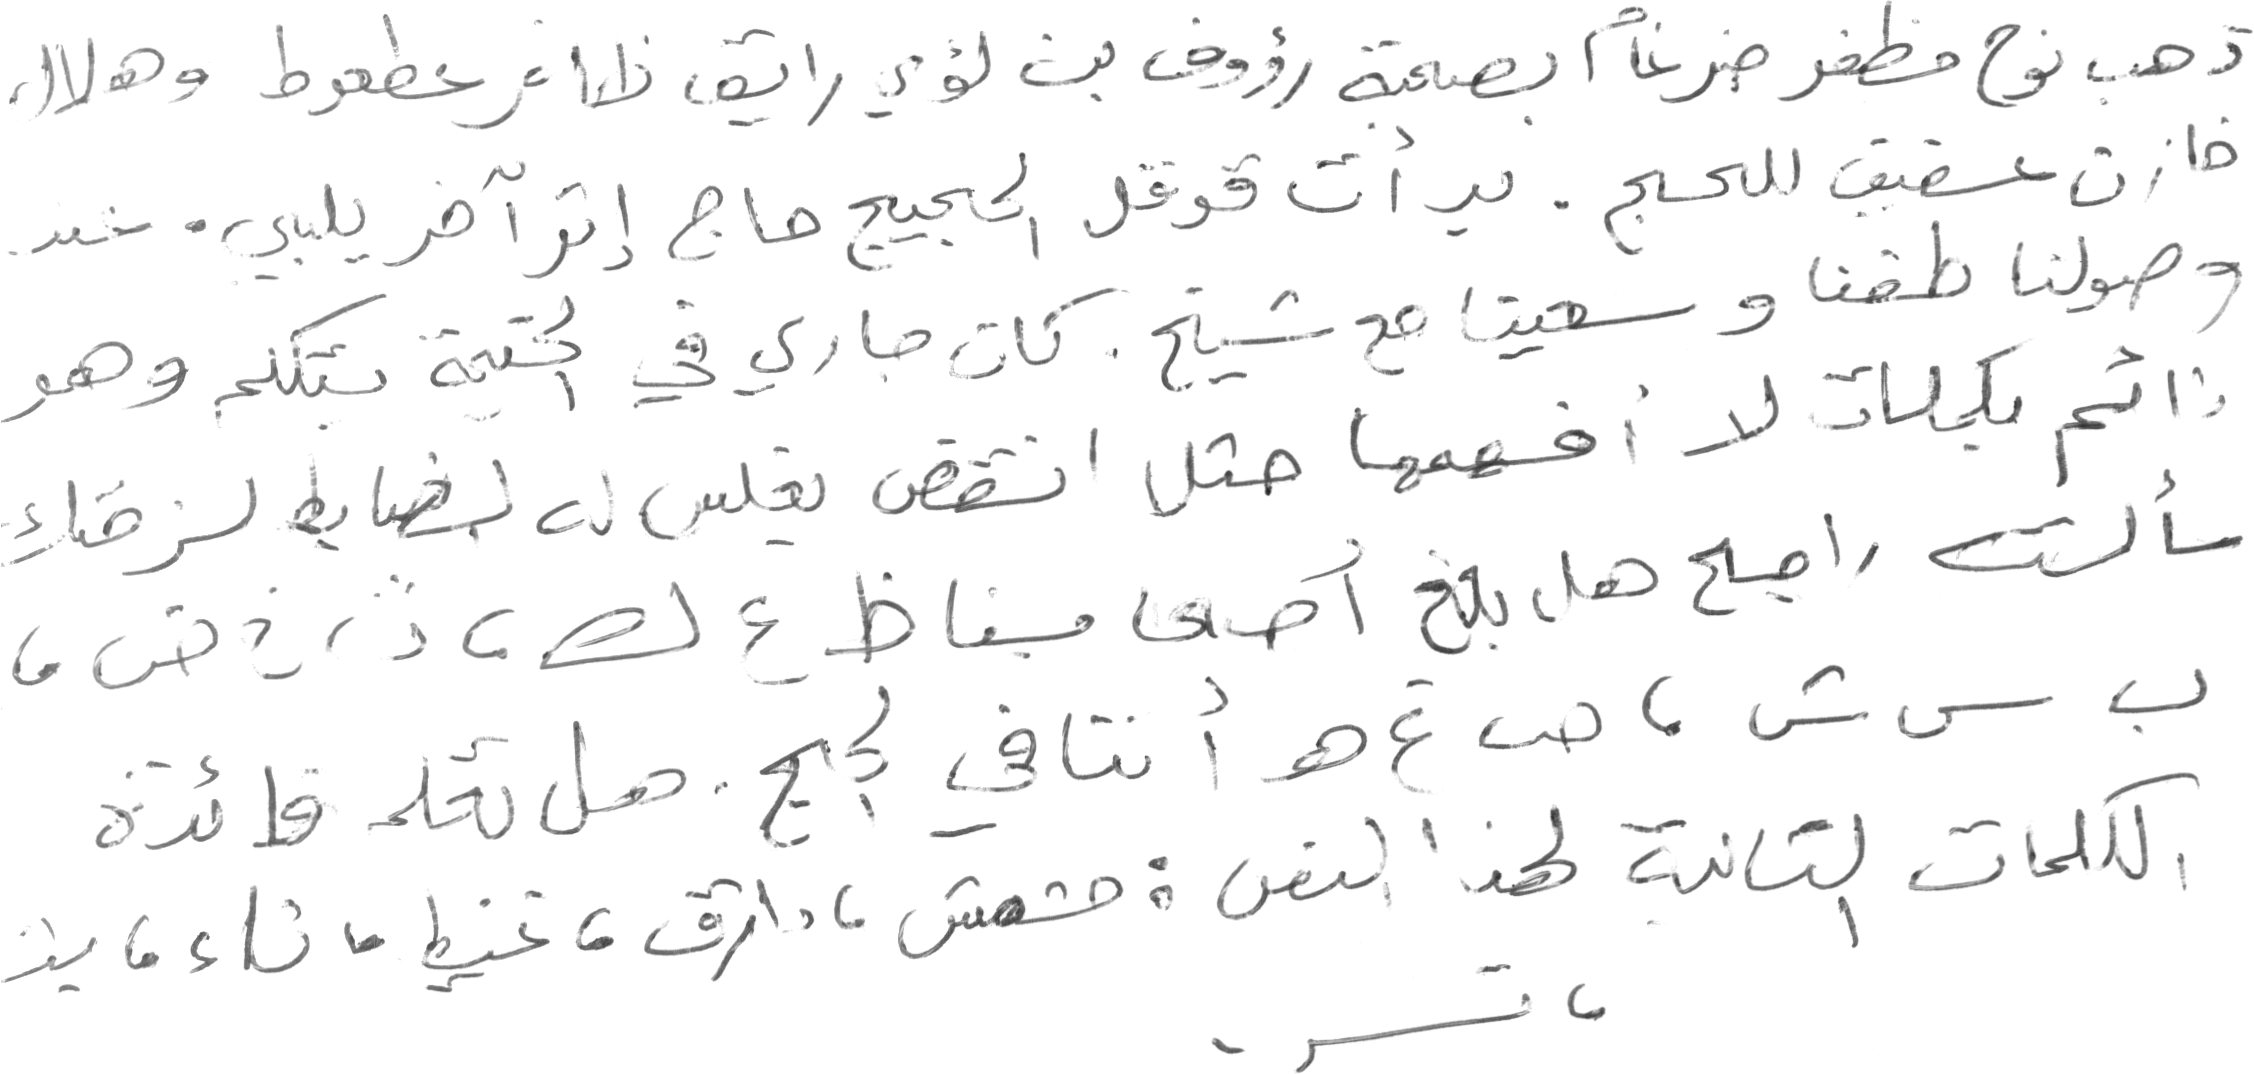 ذهب نوح مظفر ضرغام بصحبة رؤوف بن لؤي رائق ظافر عطعوط وهلال
خازن عفيف للحج . بدأت قوقل الحجيج حاج إثر آخر يلبي . عند
وصولنا طفنا وسعينا مع شيخ . كان جاري في الخيمة يتكلم وهو
نائم بكلمات لا أفهمها مثل انتقض بغلس له لضابط لزقك
سألت راجح هل بلغ أقصى ظ ع لص ، ث ، خ ض ،
ب س ش ، ص غ هـ أثناء الحج . هل تعلم فائدة
الكلمات التالية لهذا النص : مشمش ، دارق ، غيظ ، ثاء ، يذ
، تسر .